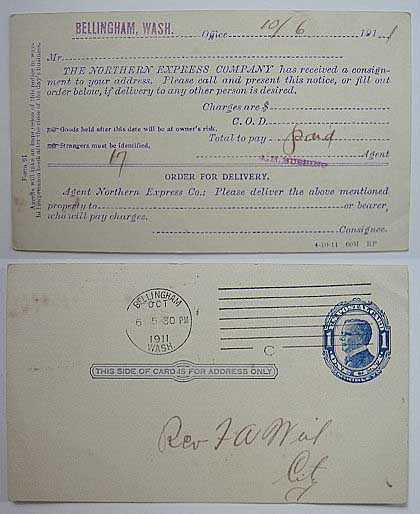 BELLINGHAM, WASH.
Office 10/6 1911
Mr
THE NORTHERN EXPRESS COMPANY has received a consign-
ment to your address. Please call and present this notice, or fill out
order below, if delivery to any other person is desired.
Charges are $
C. O. D.
Goods held after this date will be at owner's risk.
Total to pay paid
Strangers must be identified.
17
Agent
ORDER FOR DELIVERY.
Agent Northern Express Co.: Please deliver the above mentioned
property to or bearer,
who will pay charges.
Consignee.
4-10-11 60M RP
Form 91
Agents will take an impression of this notice in
impression book after the close of the day's business.
BELLINGHAM
OCT
6 5 30 PM
1911
WASH.
C
U.S. POSTAL CARD
1 1
ONE CENT
McKINLEY
THIS SIDE OF CARD IS FOR ADDRESS ONLY
Rev F A Weil
City